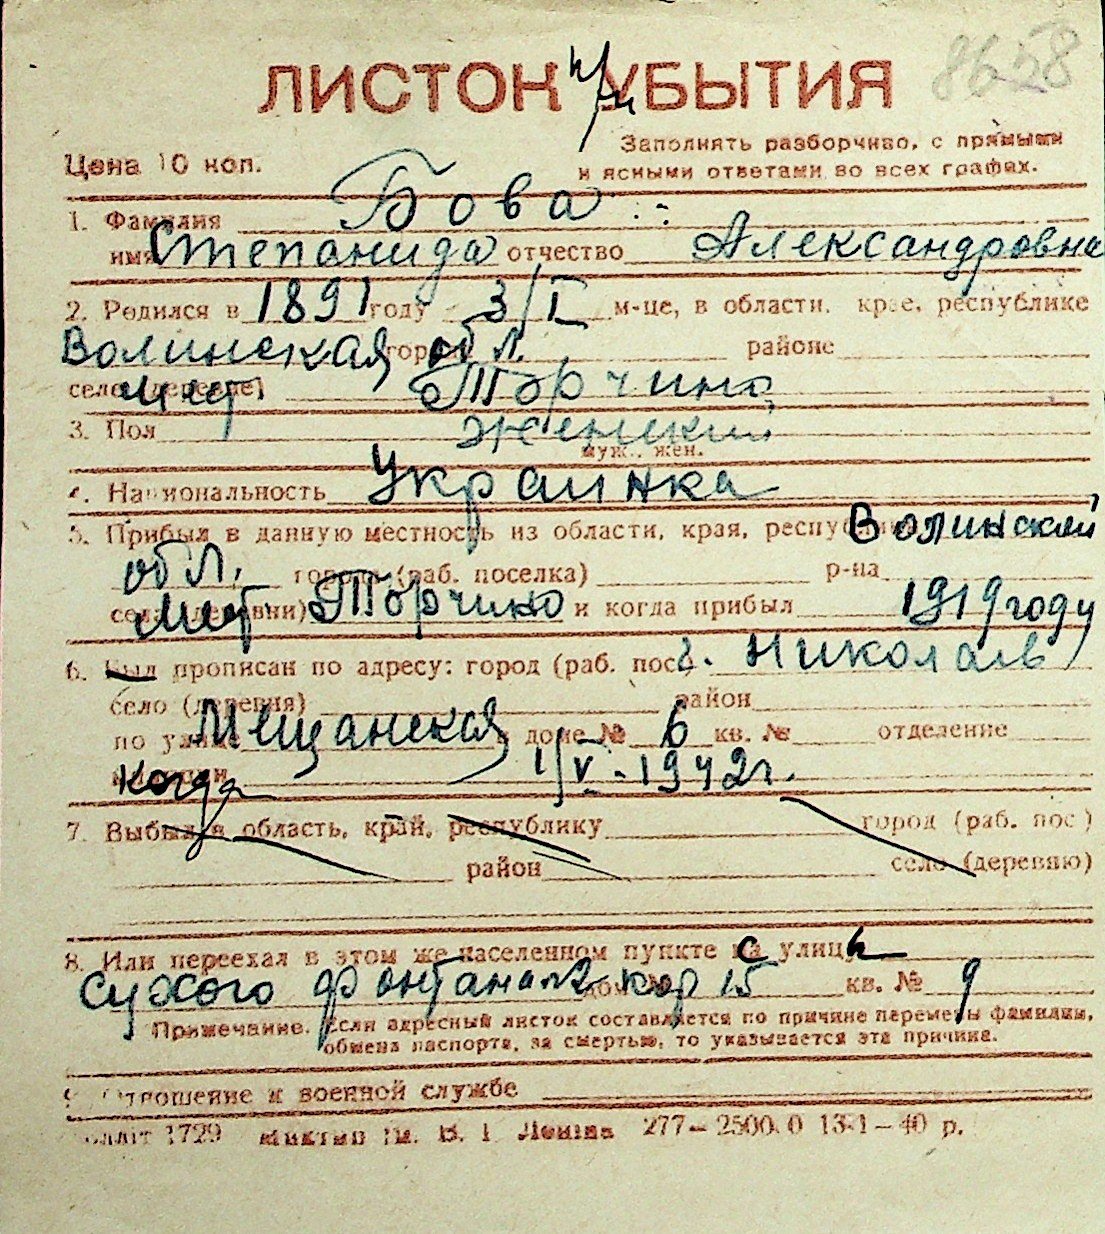 8658
ЛИСТОК УБЫТИЯ
Цена 10 коп.
Заполнять разборчиво, с прямыми
и ясными ответами во всех графах.
1. Фамилия Бова
имя Степанида отчество Александровна
2. Родился в 1891 году 3/I м-це, в области, крае, республике
Волинская обл. районе
село (деревне) мет Торчино
3. Пол женский
муж., жен.
4. Национальность Украинка
5. Прибыл в данную местность из области, края, респуб Волинской
обл. города (раб. поселка) р-на
села (деревни) мет Торчино и когда прибыл 1919 году
6. Был прописан по адресу: город (раб. пос г. Николаев)
село (деревня) район
по улице Мещанская доме № 6 кв. № отделение
когда 1/V-1942 г.
7. Выбыл в область, край, республику город (раб. пос)
район село (деревню)
8. Или переехал в этом же населенном пункте с улици
Сухого фонтана №2 кор 15 кв. № 9
Примечание. Если адресный листок составляется по причине перемены фамилии,
обмена паспорта, за смертью, то указывается эта причина.
9. Отношение к военной службе
1729 им. В. І Леніна 277—2500.0 13-1—40 р.